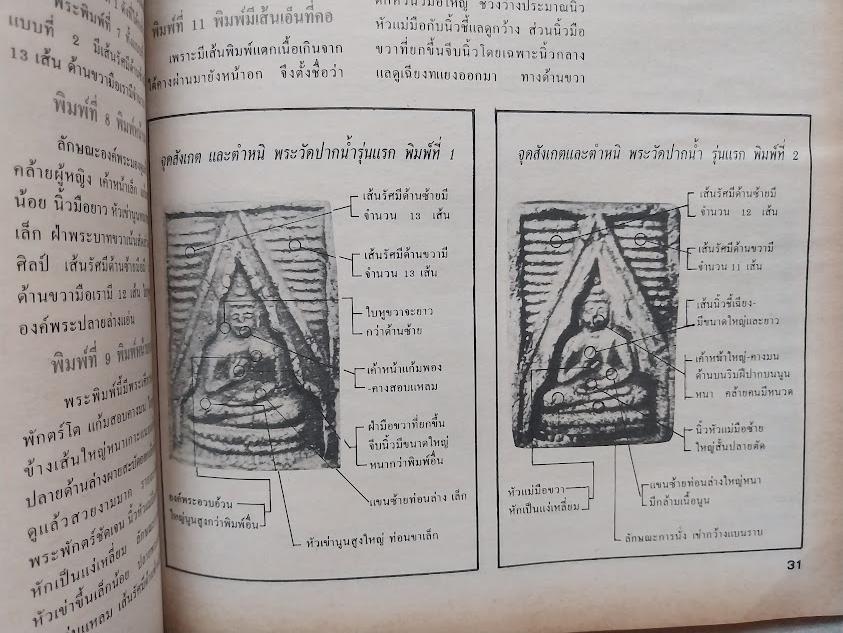 พระพิมพ์ที่ 7
แบบที่ 2 มีเส้นรัศมีด้าน
13 เส้น ด้านขวามือเรามี
พิมพ์ที่ 8
ลักษณะองค์พระ
คล้ายผู้หญิง เค้าหน้าเล็ก
น้อย นิ้วมือยาว หัวเข่านูน
เล็ก ฝ่าพระบาทขวา
ศิลป์ เส้นรัศมีด้านซ้าย
ด้านขวามือเรามี 12 เส้น
องค์พระปลายล่างแอ่น
พิมพ์ที่ 9
พระพิมพ์นี้มีพระ
พักตร์โต แก้มสอบคางมน
ข้างเส้นใหญ่หนา
ปลายด้านล่างผาย
ดูแล้วสวยงามมาก
พระพักตร์ชัดเจน
หักเป็นแง่เหลี่ยม
หัวเข่าขึ้นเล็กน้อย
แหลม เส้นรัศมี
พิมพ์ที่ 11 พิมพ์มีเส้นเอ็นที่คอ
เพราะมีเส้นพิมพ์แตกเนื้อเกินจาก
ใต้คางผ่านมายังหน้าอก จึงตั้งชื่อว่า
ช่วงว่างประมาณนิ้ว
หัวแม่มือกับนิ้วชี้แลดูกว้าง ส่วนนิ้วมือ
ขวาที่ยกขึ้นจีบนิ้วโดยเฉพาะนิ้วกลาง
แลดูเฉียงทแยงออกมา ทางด้านขวา
จุดสังเกต และตำหนิ พระวัดปากน้ำรุ่นแรก พิมพ์ที่ 1
เส้นรัศมีด้านซ้ายมี
จำนวน 13 เส้น
เส้นรัศมีด้านขวามี
จำนวน 13 เส้น
ใบหูขวาจะยาว
กว่าด้านซ้าย
เค้าหน้าแก้มพอง
-คางสอบแหลม
ฝ่ามือขวาที่ยกขึ้น
จีบนิ้วมีขนาดใหญ่
หนากว่าพิมพ์อื่น
แขนซ้ายท่อนล่าง เล็ก
องค์พระอวบอ้วน
ใหญ่นูนสูงกว่าพิมพ์อื่น
หัวเข่านูนสูงใหญ่ ท่อนขาเล็ก
จุดสังเกตและตำหนิ พระวัดปากน้ำ รุ่นแรก พิมพ์ที่ 2
เส้นรัศมีด้านซ้ายมี
จำนวน 12 เส้น
เส้นรัศมีด้านขวามี
จำนวน 11 เส้น
เส้นนิ้วชี้เฉียง-
มีขนาดใหญ่และยาว
เค้าหน้าใหญ่-คางมน
ด้านบนริมฝีปากบนนูน
หนา คล้ายคนมีหนวด
นิ้วหัวแม่มือซ้าย
ใหญ่สั้นปลายตัด
แขนซ้ายท่อนล่างใหญ่หนา
มีกล้ามเนื้อนูน
หัวแม่มือขวา
หักเป็นแง่เหลี่ยม
ลักษณะการนั่ง เข่ากว้างแบนราบ
31